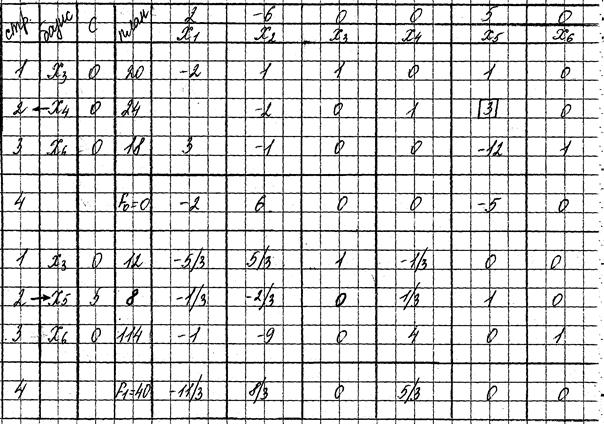 2 -6 0 0 5 0
стр. базис C план X1 X2 X3 X4 X5 X6
1 X3 0 20 -2 1 1 0 1 0
2 ←X4 0 24 -2 0 1 3 0
3 X6 0 18 3 -1 0 0 -12 1
4 F0=0 -2 6 0 0 -5 0
1 X3 0 12 -5/3 5/3 1 -1/3 0 0
2 →X5 5 8 -1/3 -2/3 0 1/3 1 0
3 X6 0 114 -1 -9 0 4 0 1
4 F1=40 -11/3 8/3 0 5/3 0 0